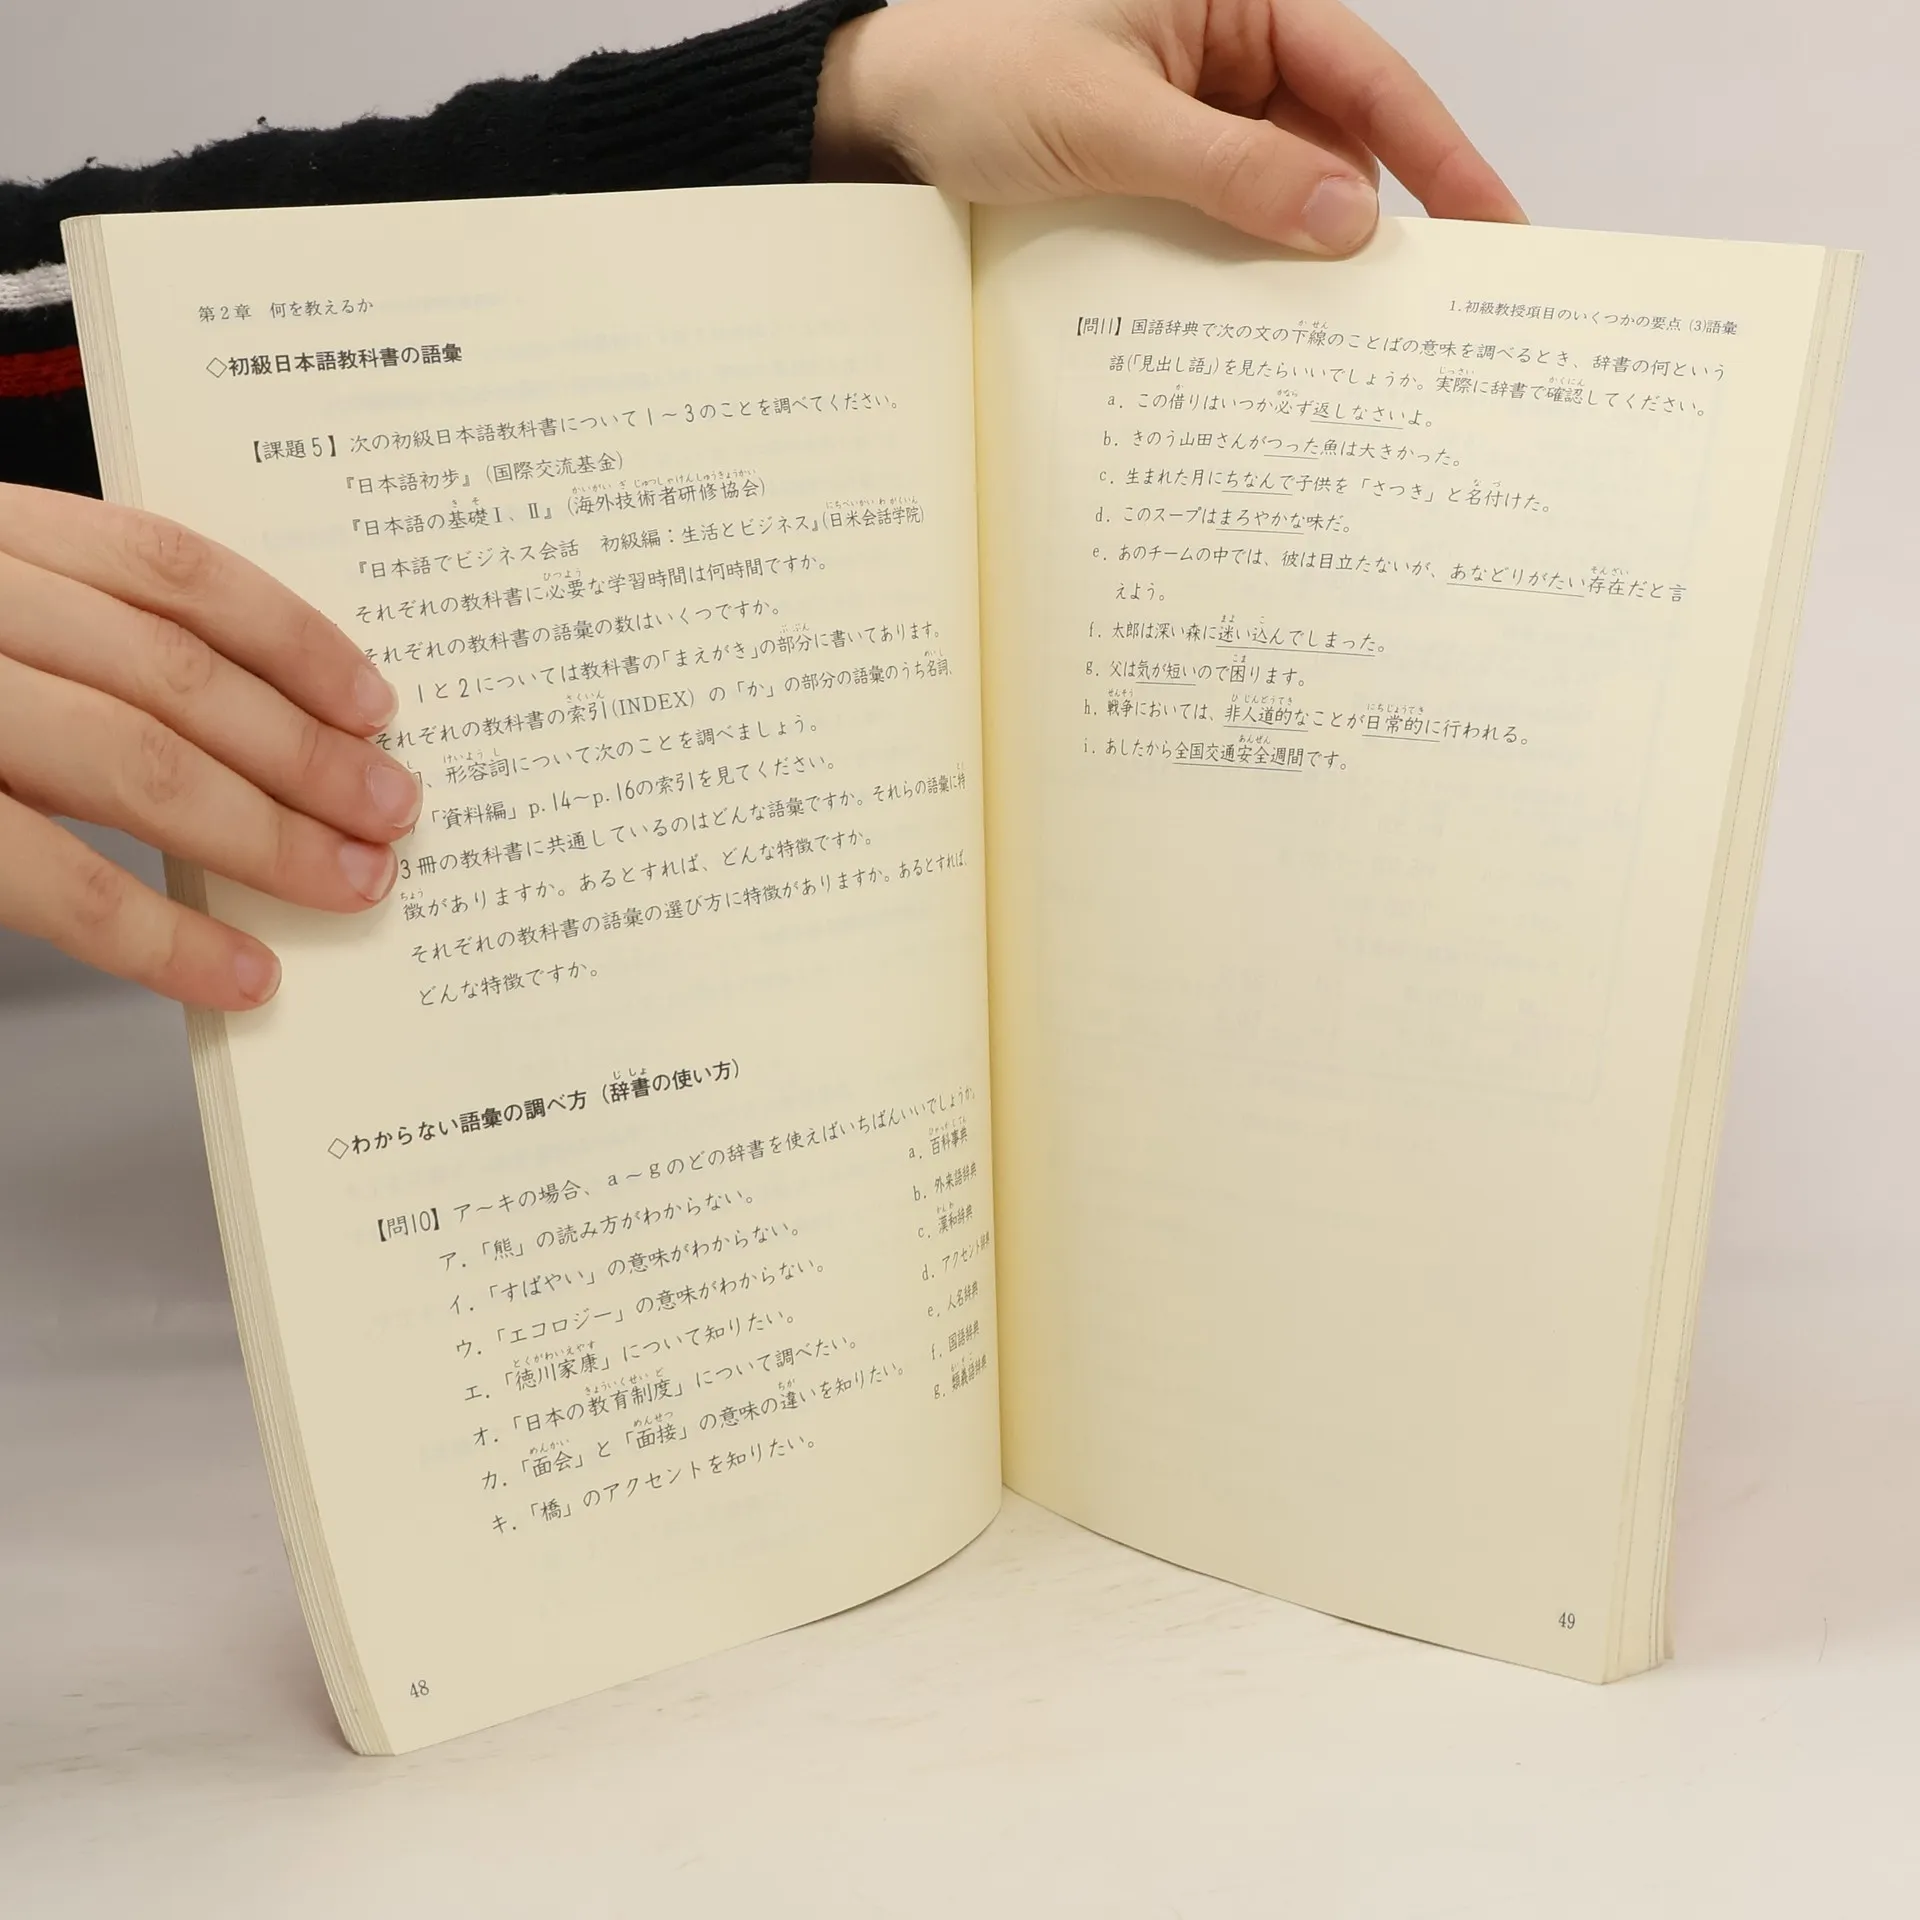 第2章 何を教えるか
◇初級日本語教科書の語彙
【課題5】次の初級日本語教科書について1～3のことを調べてください。
『日本語初歩』(国際交流基金)
『日本語の基礎Ⅰ、Ⅱ』(海外技術者研修協会)
『日本語でビジネス会話 初級編：生活とビジネス』(日米会話学院)
それぞれの教科書に必要な学習時間は何時間ですか。
それぞれの教科書の語彙の数はいくつですか。
1と2については教科書の「まえがき」の部分に書いてあります。
それぞれの教科書の索引(INDEX)の「か」の部分の語彙のうち名詞、
、形容詞について次のことを調べましょう。
「資料編」p.14～p.16の索引を見てください。
3冊の教科書に共通しているのはどんな語彙ですか。それらの語彙に特
徴がありますか。あるとすれば、どんな特徴ですか。
それぞれの教科書の語彙の選び方に特徴がありますか。あるとすれば、
どんな特徴ですか。
◇わからない語彙の調べ方（辞書の使い方）
【問10】ア～キの場合、a～gのどの辞書を使えばいちばんいいでしょうか。
ア．「熊」の読み方がわからない。
イ．「すばやい」の意味がわからない。
ウ．「エコロジー」の意味がわからない。
エ．「徳川家康」について知りたい。
オ．「日本の教育制度」について調べたい。
カ．「面会」と「面接」の意味の違いを知りたい。
キ．「橋」のアクセントを知りたい。
a．百科事典
b．外来語辞典
c．漢和辞典
d．アクセント辞典
e．人名辞典
f．国語辞典
g．類義語辞典
48
1.初級教授項目のいくつかの要点 (3)語彙
【問11】国語辞典で次の文の下線のことばの意味を調べるとき、辞書の何という
語(「見出し語」)を見たらいいでしょうか。実際に辞書で確認してください。
a．この借りはいつか必ず返しなさいよ。
b．きのう山田さんがつった魚は大きかった。
c．生まれた月にちなんで子供を「さつき」と名付けた。
d．このスープはまろやかな味だ。
e．あのチームの中では、彼は目立たないが、あなどりがたい存在だと言
えよう。
f．太郎は深い森に迷い込んでしまった。
g．父は気が短いので困ります。
h．戦争においては、非人道的なことが日常的に行われる。
i．あしたから全国交通安全週間です。
49